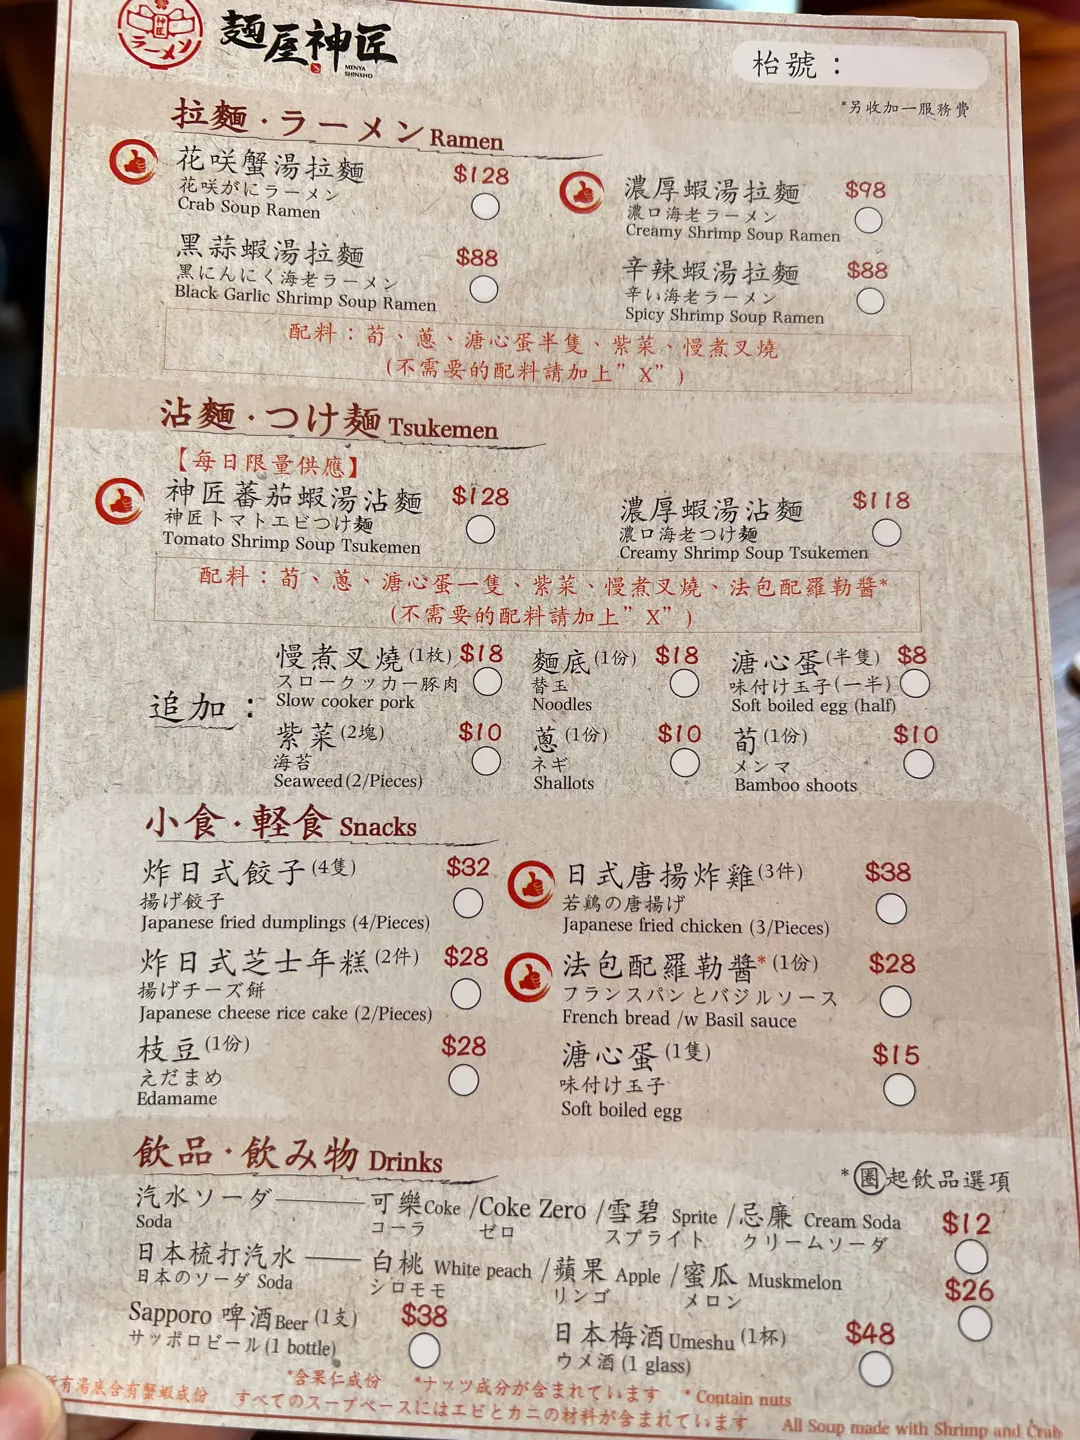 神匠
ラーメン
麵屋神匠
MENYA
SHINSHO
枱號：
*另收加一服務費
拉麵・ラーメン Ramen
花咲蟹湯拉麵 $128
花咲がにラーメン
Crab Soup Ramen
濃厚蝦湯拉麵 $98
濃口海老ラーメン
Creamy Shrimp Soup Ramen
黑蒜蝦湯拉麵 $88
黒にんにく海老ラーメン
Black Garlic Shrimp Soup Ramen
辛辣蝦湯拉麵 $88
辛い海老ラーメン
Spicy Shrimp Soup Ramen
配料：荀、蔥、溏心蛋半隻、紫菜、慢煮叉燒
(不需要的配料請加上”X”)
沾麵・つけ麵 Tsukemen
【每日限量供應】
神匠蕃茄蝦湯沾麵 $128
神匠トマトエビつけ麵
Tomato Shrimp Soup Tsukemen
濃厚蝦湯沾麵 $118
濃口海老つけ麵
Creamy Shrimp Soup Tsukemen
配料：荀、蔥、溏心蛋一隻、紫菜、慢煮叉燒、法包配羅勒醬*
(不需要的配料請加上”X”)
追加：
慢煮叉燒(1枚) $18
スロークッカー豚肉
Slow cooker pork
麵底(1份) $18
替玉
Noodles
溏心蛋(半隻) $8
味付け玉子(一半)
Soft boiled egg (half)
紫菜(2塊) $10
海苔
Seaweed(2/Pieces)
蔥(1份) $10
ネギ
Shallots
荀(1份) $10
メンマ
Bamboo shoots
小食・軽食 Snacks
炸日式餃子(4隻) $32
揚げ餃子
Japanese fried dumplings (4/Pieces)
日式唐揚炸雞(3件) $38
若鶏の唐揚げ
Japanese fried chicken (3/Pieces)
炸日式芝士年糕(2件) $28
揚げチーズ餅
Japanese cheese rice cake (2/Pieces)
法包配羅勒醬*(1份) $28
フランスパンとバジルソース
French bread /w Basil sauce
枝豆(1份) $28
えだまめ
Edamame
溏心蛋(1隻) $15
味付け玉子
Soft boiled egg
飲品・飲み物 Drinks
*圈起飲品選項
汽水ソーダ 可樂Coke /Coke Zero /雪碧 Sprite /忌廉 Cream Soda $12
Soda コーラ ゼロ スプライト クリームソーダ
日本梳打汽水 白桃 White peach /蘋果 Apple /蜜瓜 Muskmelon $26
日本のソーダ Soda シロモモ リンゴ メロン
Sapporo 啤酒Beer (1支) $38
サッポロビール(1 bottle)
日本梅酒Umeshu (1杯) $48
ウメ酒(1 glass)
*含果仁成份 *ナッツ成分が含まれています * Contain nuts
所有湯底含有蟹蝦成份 すべてのスープベースにはエビとカニの材料が含まれています All Soup made with Shrimp and Crab